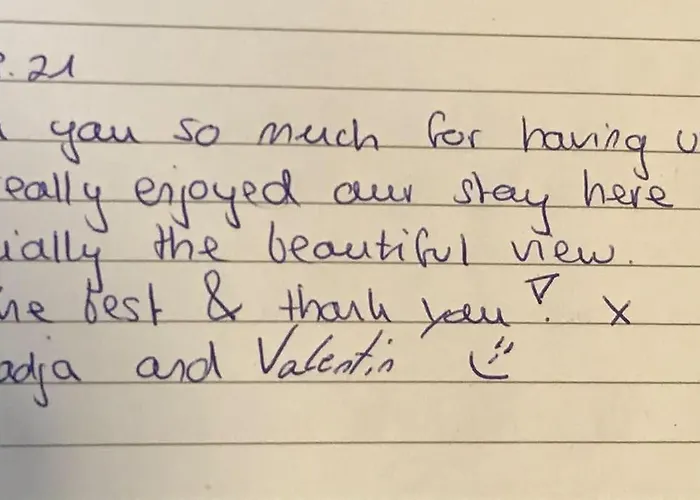 . 21
you so much for having u
eally enjoyed our stay here
ially the beautiful view.
he best & thank you! x
adja and Valentin